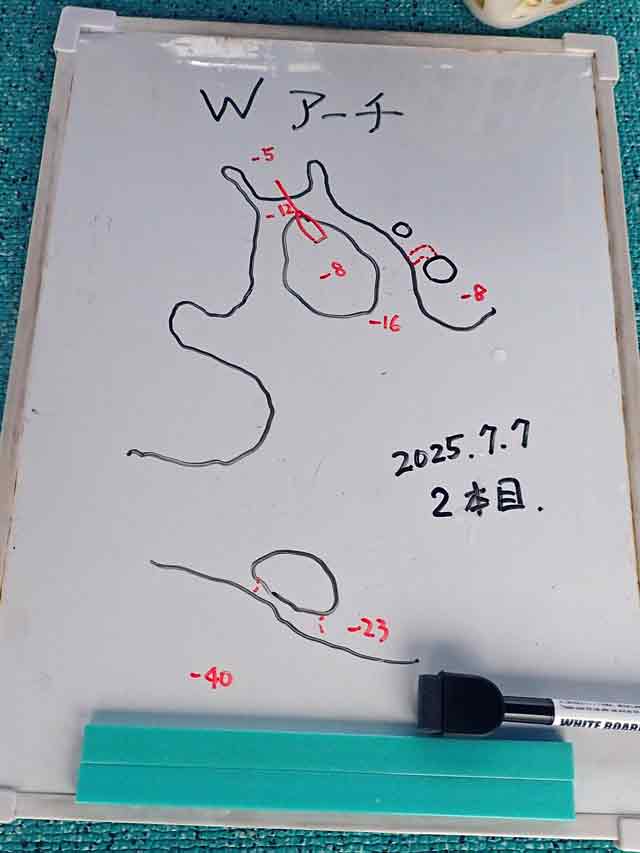 W アーチ
-5
-12
-8
-8
-16
2025.7.7
2本目.
-23
-40
WHITE BOARD